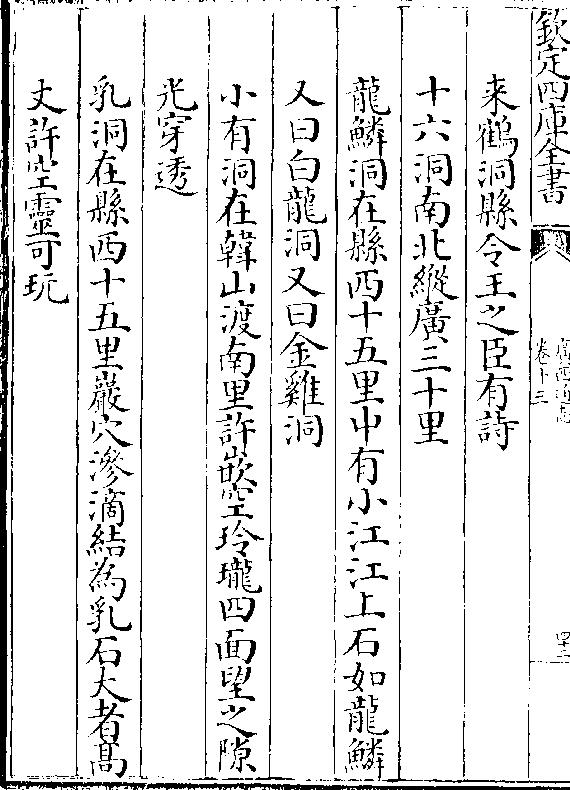 欽定四庫全書
廣西通志
卷十三
四二
来鶴洞縣令王之臣有詩
十六洞南北縱廣三十里
龍鱗洞在縣西十五里中有小江江上石如龍鱗
又曰白龍洞又曰金雞洞
小有洞在韓山渡南里許嵌空玲瓏四面望之隙
光穿透
乳洞在縣西十五里巖穴滲滴結為乳石大者髙
丈許空靈可玩